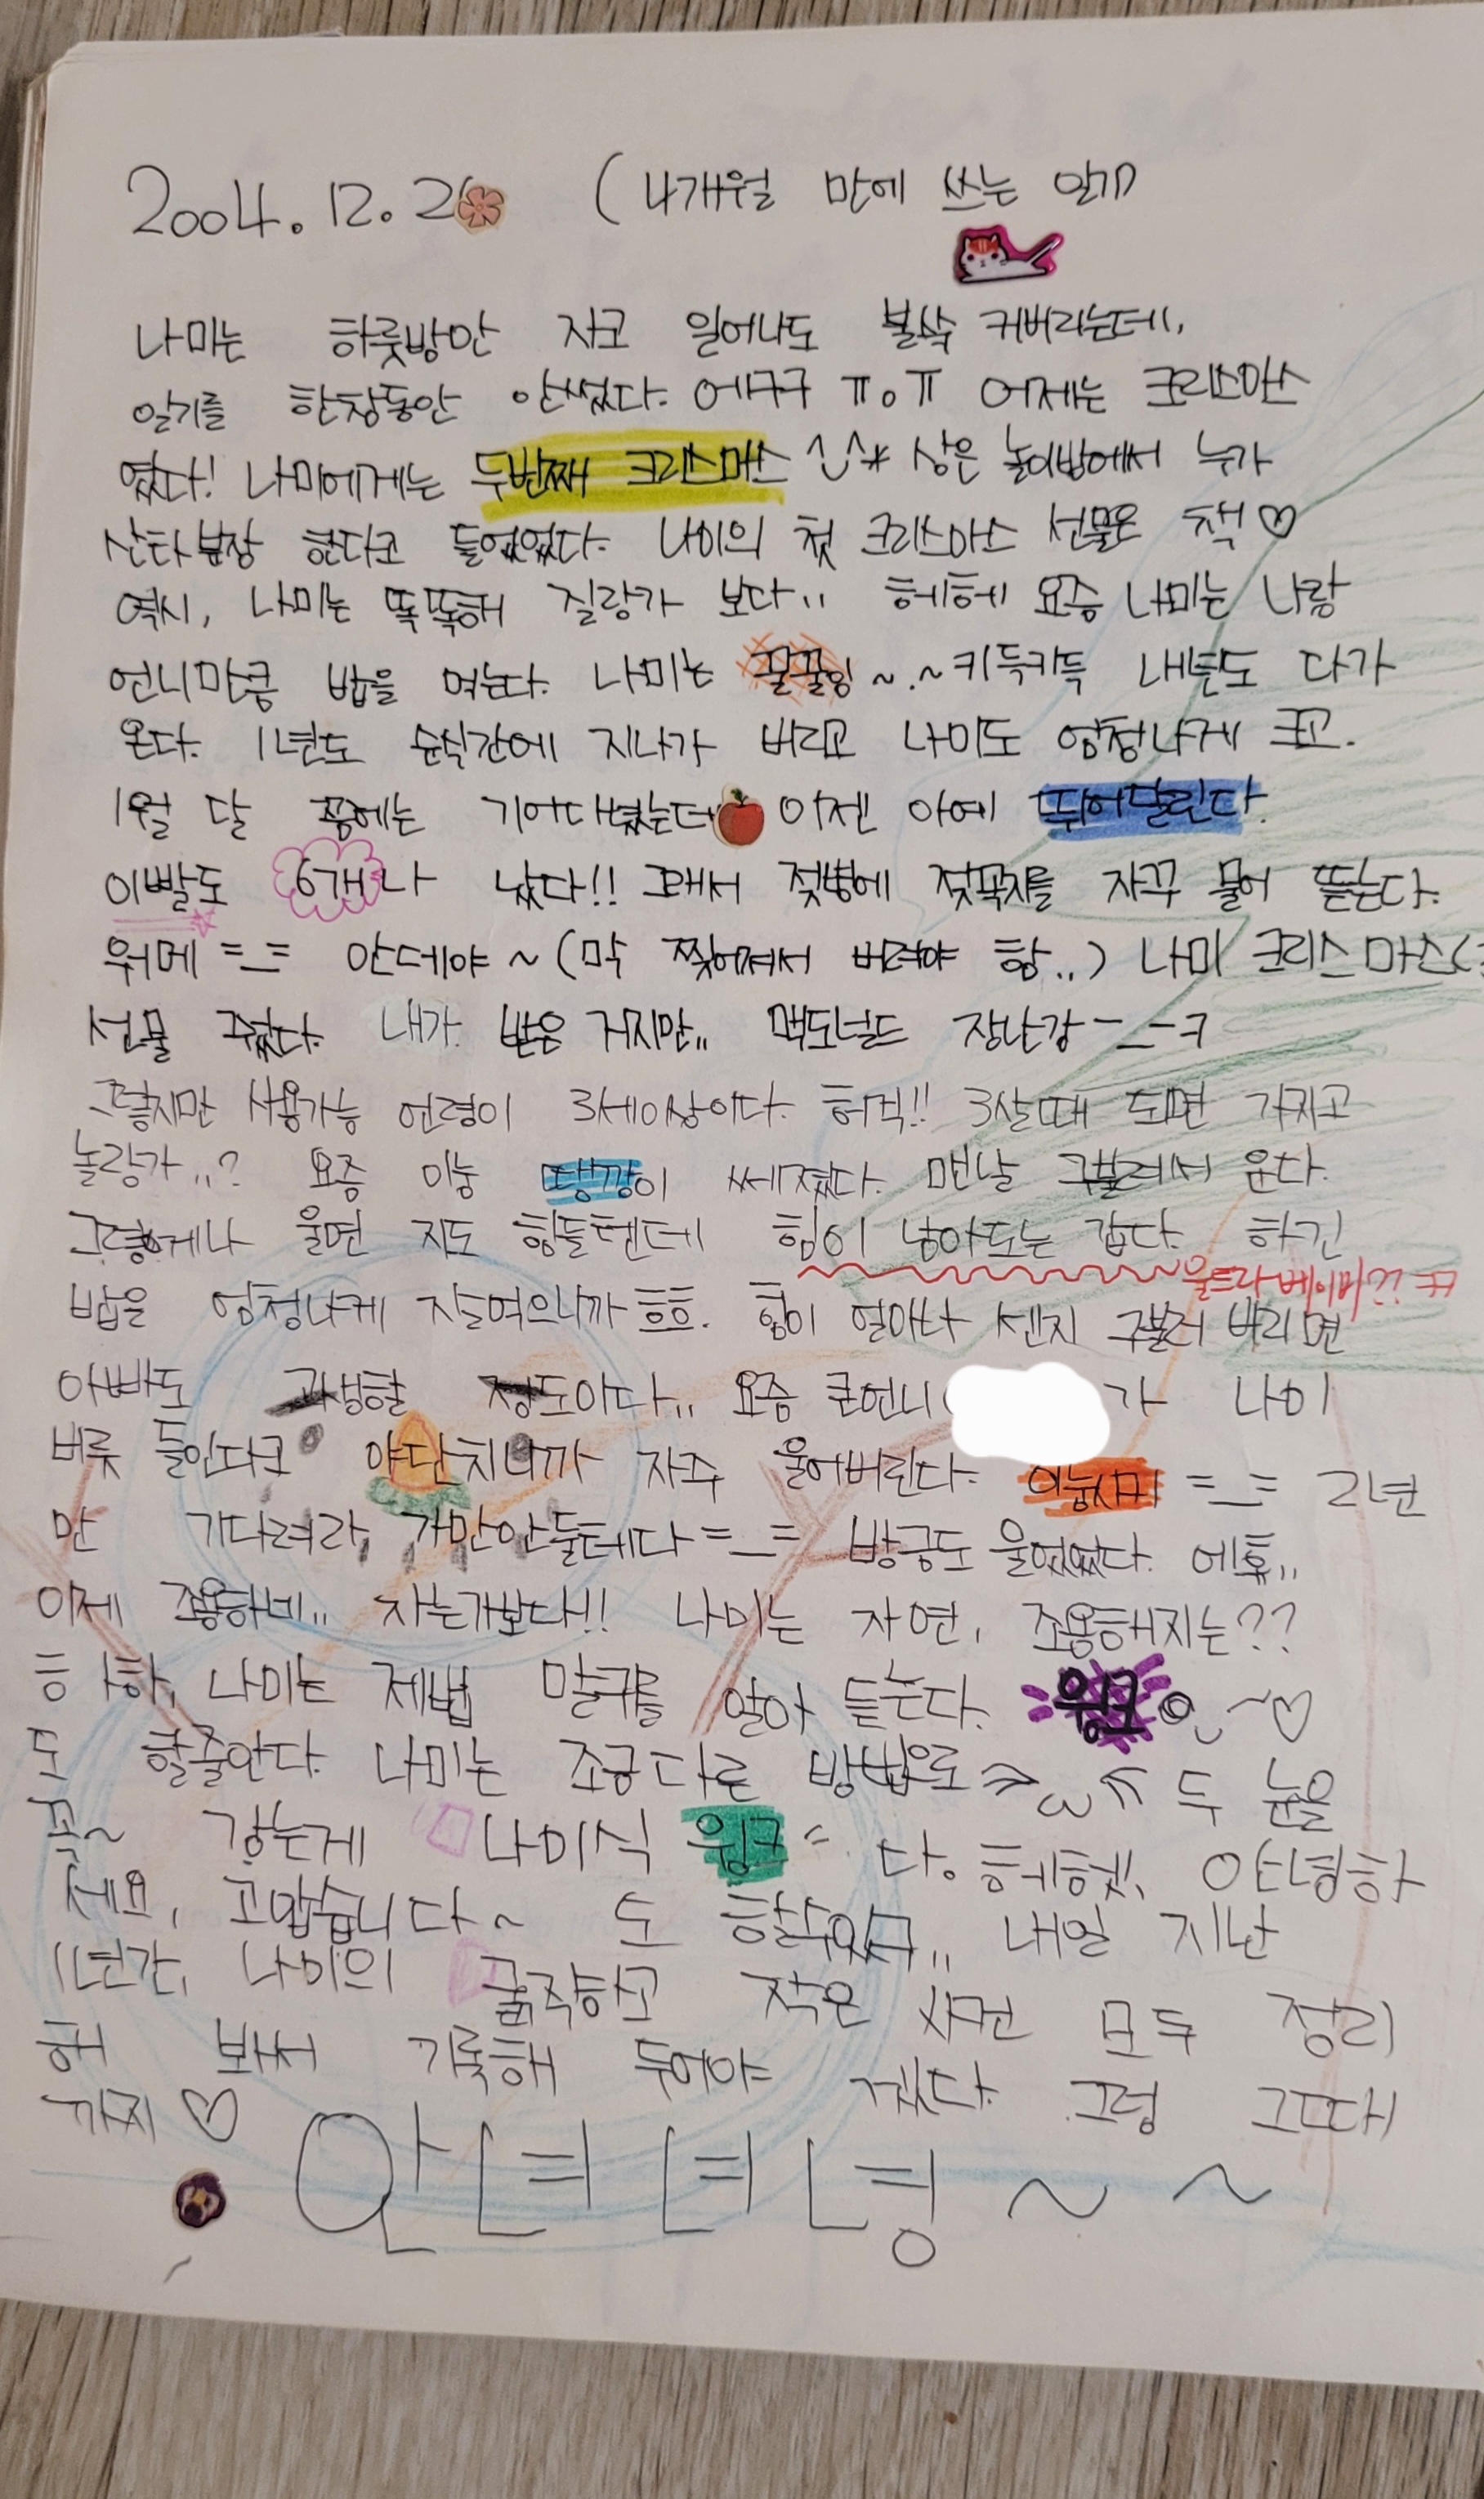 2004. 12. 2 (4개월 만에 쓰는 일기)
나미는 하룻방안 자고 일어나도 불쑥 커버리는데,
일기를 한창동안 안썼다. 에구구 ㅠ.ㅠ 어제는 크리스마스
였다! 나미에게는 두번째 크리스마스 ^_^* 상은 놀이방에서 누가
산타분장 한다고 들었었다. 나미의 첫 크리스마스 선물은 책♡
역시, 나미는 똑똑해 질랑가 보다.. 헤헤 요즘 나미는 나랑
언니만큼 밥을 먹는다. 나미는 꿀꿀이 ~.~ 키득키득 내년도 다가
온다. 1년도 순식간에 지나가 버리고 나미도 엄청나게 크고.
1월 달 쯤에는 기어다녔는데 이젠 아예 뛰어달린다.
이빨도 6개나 났다!! 그래서 젖병에 젖꼭지를 자꾸 물어 뜯는다.
워메 =_= 안데야 ~ (막 찢어져서 버려야 함..) 나미 크리스마스
선물 줬다. 내가 받은 거지만.. 맥도널드 장난감 -_-ㅋ
그렇지만 사용가능 연령이 3세이상이다. 허걱!! 3살때 되면 가지고
놀랑가..? 요즘 이놈 땡깡이 쎄졌다. 맨날 구불러서 운다.
그렇게나 울면 지도 힘들텐데 힘이 남아도는 갑다. 하긴
울트라 베이비?? ㅋㅋ
밥을 엄청나게 잘먹으니까 흐흐. 힘이 얼마나 센지 구불러 버리면
아빠도 고생할 정도이다.. 요즘 큰언니( 가 나미
버릇 들인다고 야단치니까 자주 울어버린다. =_= 2년
만 기다려라, 가만안둘테다 =_= 방금도 울었었다. 에휴..
이제 조용하네.. 자는가보다!! 나미는 자면, 조용해지는??
하하, 나미는 제법 말귀를 알아 듣는다. 윙크 ~♡
도 할줄안다. 나미는 조금 다른 방법으로 >ω< 두 눈을
꼭~ 감는게 나미식 윙크 다. 헤헷, 안녕하
세요, 고맙습니다~ 도 할수있고.. 내일 지난
1년간, 나미의 굵직하고 작은 사건 모두 정리
해 봐서 기록해 두어야 겠다. 그럼 그때
까지 ♡
안녀녀녕 ~ ~